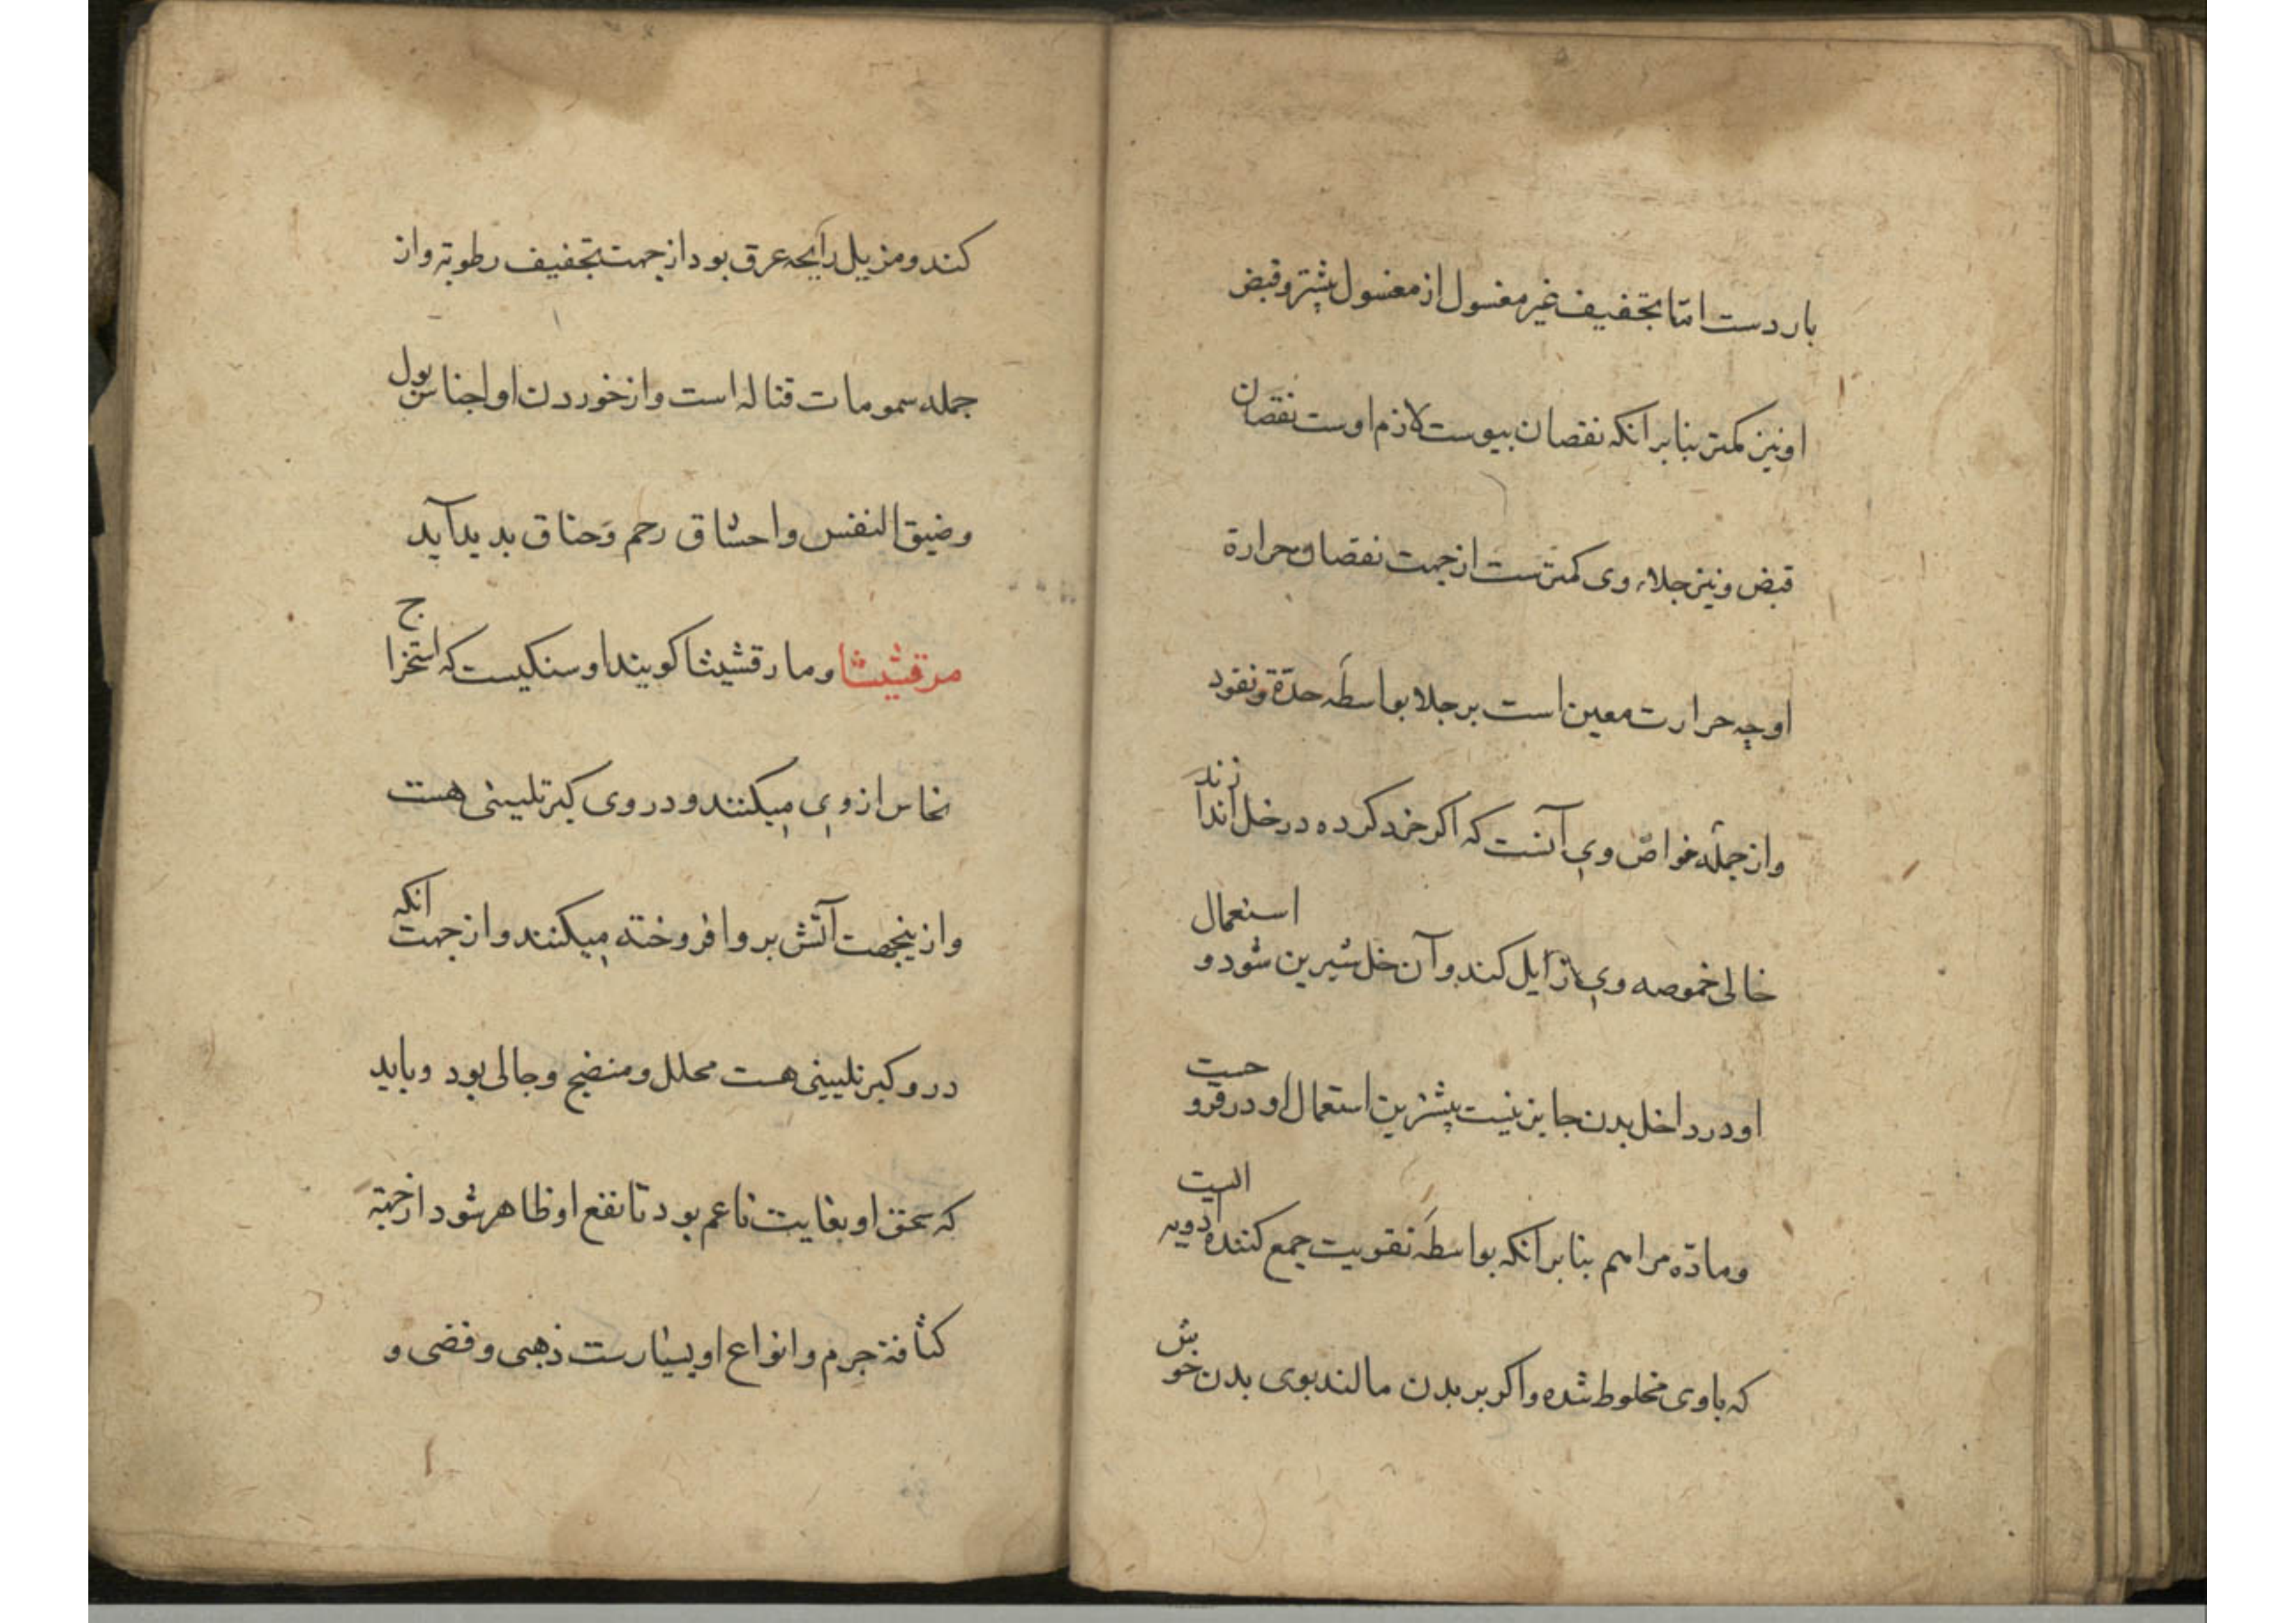 باردست اما تجفیف غیر مغسول از مغسول بیشتر و قبض
او نیز کمتر بنا بر انکه نقصان یبوست لازم اوست نقصان
قبض و نیز جلاء وی کمترست از جهت نقصان حرارة
او چه حرارت معین است بر جلا بواسطه حدّة و نفود
و از جمله خواصّ وی آنست که اکر خرد کرده در خل اندازند
خالی خموصه وی زایل کند و آن خل شیرین شود و استعمال
او در داخل بدن جایز نیست بیشترین استعمال او در قروحیت
و مادّه مراهم بنا بر انکه بواسطه تقویت جمع کننده ادویه ایست
که باوی مخلوط شده و اکر بر بدن مالند بوی بدن خوش
کند و مزیل رایحه عرق بود از جهت تجفیف رطوبة و از
جمله سمومات قتاله است و از خوردن او احتباس بول
و ضیق النفس و احتناق رحم و خناق بدید آید
مرقشیثا و مارقشیثا کویند او سنکیست که استخراج
نحاس از وی میکنند و در وی کبرتلیینی هست
و ازینجهت آتش برو افروخته میکنند و از جهت انکه
درو کبرتلیینی هست محلل و منضج و جالی بود و باید
که سحق او بغایت ناعم بود تا نفع او ظاهر شود از جهة
کثافة جرم و انواع او بسیارست ذهبی و فضی و